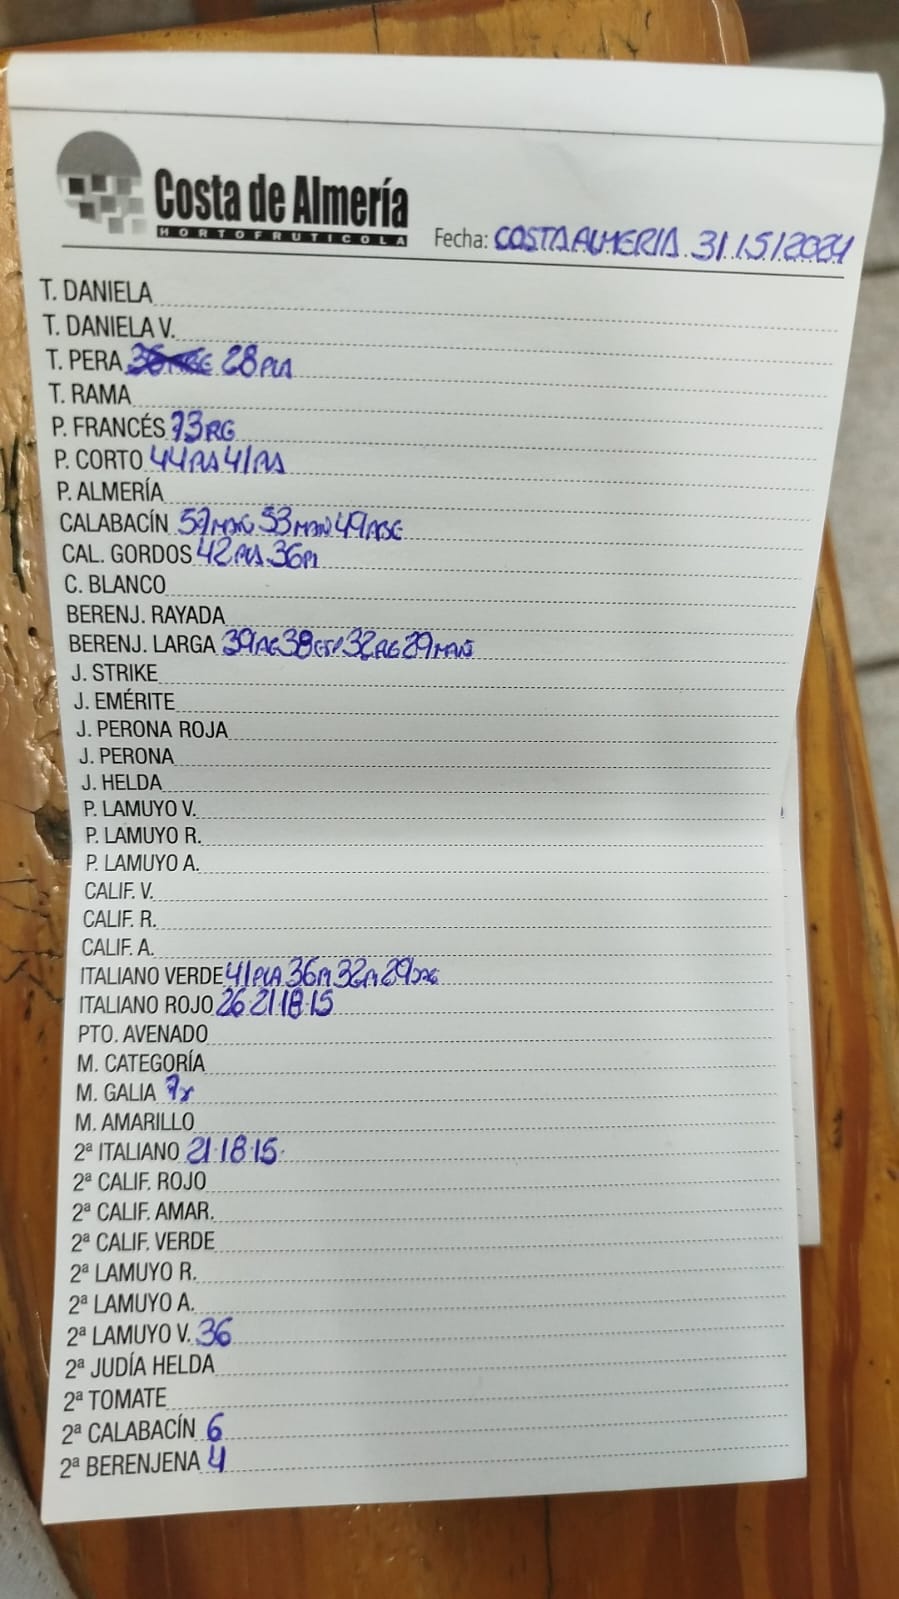 Costa de Almería
HORTOFRUTICOLA
Fecha: COSTA ALMERIA 31/5/2021
T. DANIELA
T. DANIELA V.
T. PERA 28PLA
T. RAMA
P. FRANCÉS 73RG
P. CORTO 44 41
P. ALMERÍA
CALABACÍN 53MAN
CAL. GORDOS 42 36M
C. BLANCO
BERENJ. RAYADA
BERENJ. LARGA 29MAÑ
J. STRIKE
J. EMÉRITE
J. PERONA ROJA
J. PERONA
J. HELDA
P. LAMUYO V.
P. LAMUYO R.
P. LAMUYO A.
CALIF. V.
CALIF. R.
CALIF. A.
ITALIANO VERDE 41PLA 36M 32M
ITALIANO ROJO 26 21·18·15
PTO. AVENADO
M. CATEGORÍA
M. GALIA
M. AMARILLO
2ª ITALIANO 21·18·15·
2ª CALIF. ROJO
2ª CALIF. AMAR.
2ª CALIF. VERDE
2ª LAMUYO R.
2ª LAMUYO A.
2ª LAMUYO V. 36
2ª JUDÍA HELDA
2ª TOMATE
2ª CALABACÍN 6
2ª BERENJENA 4